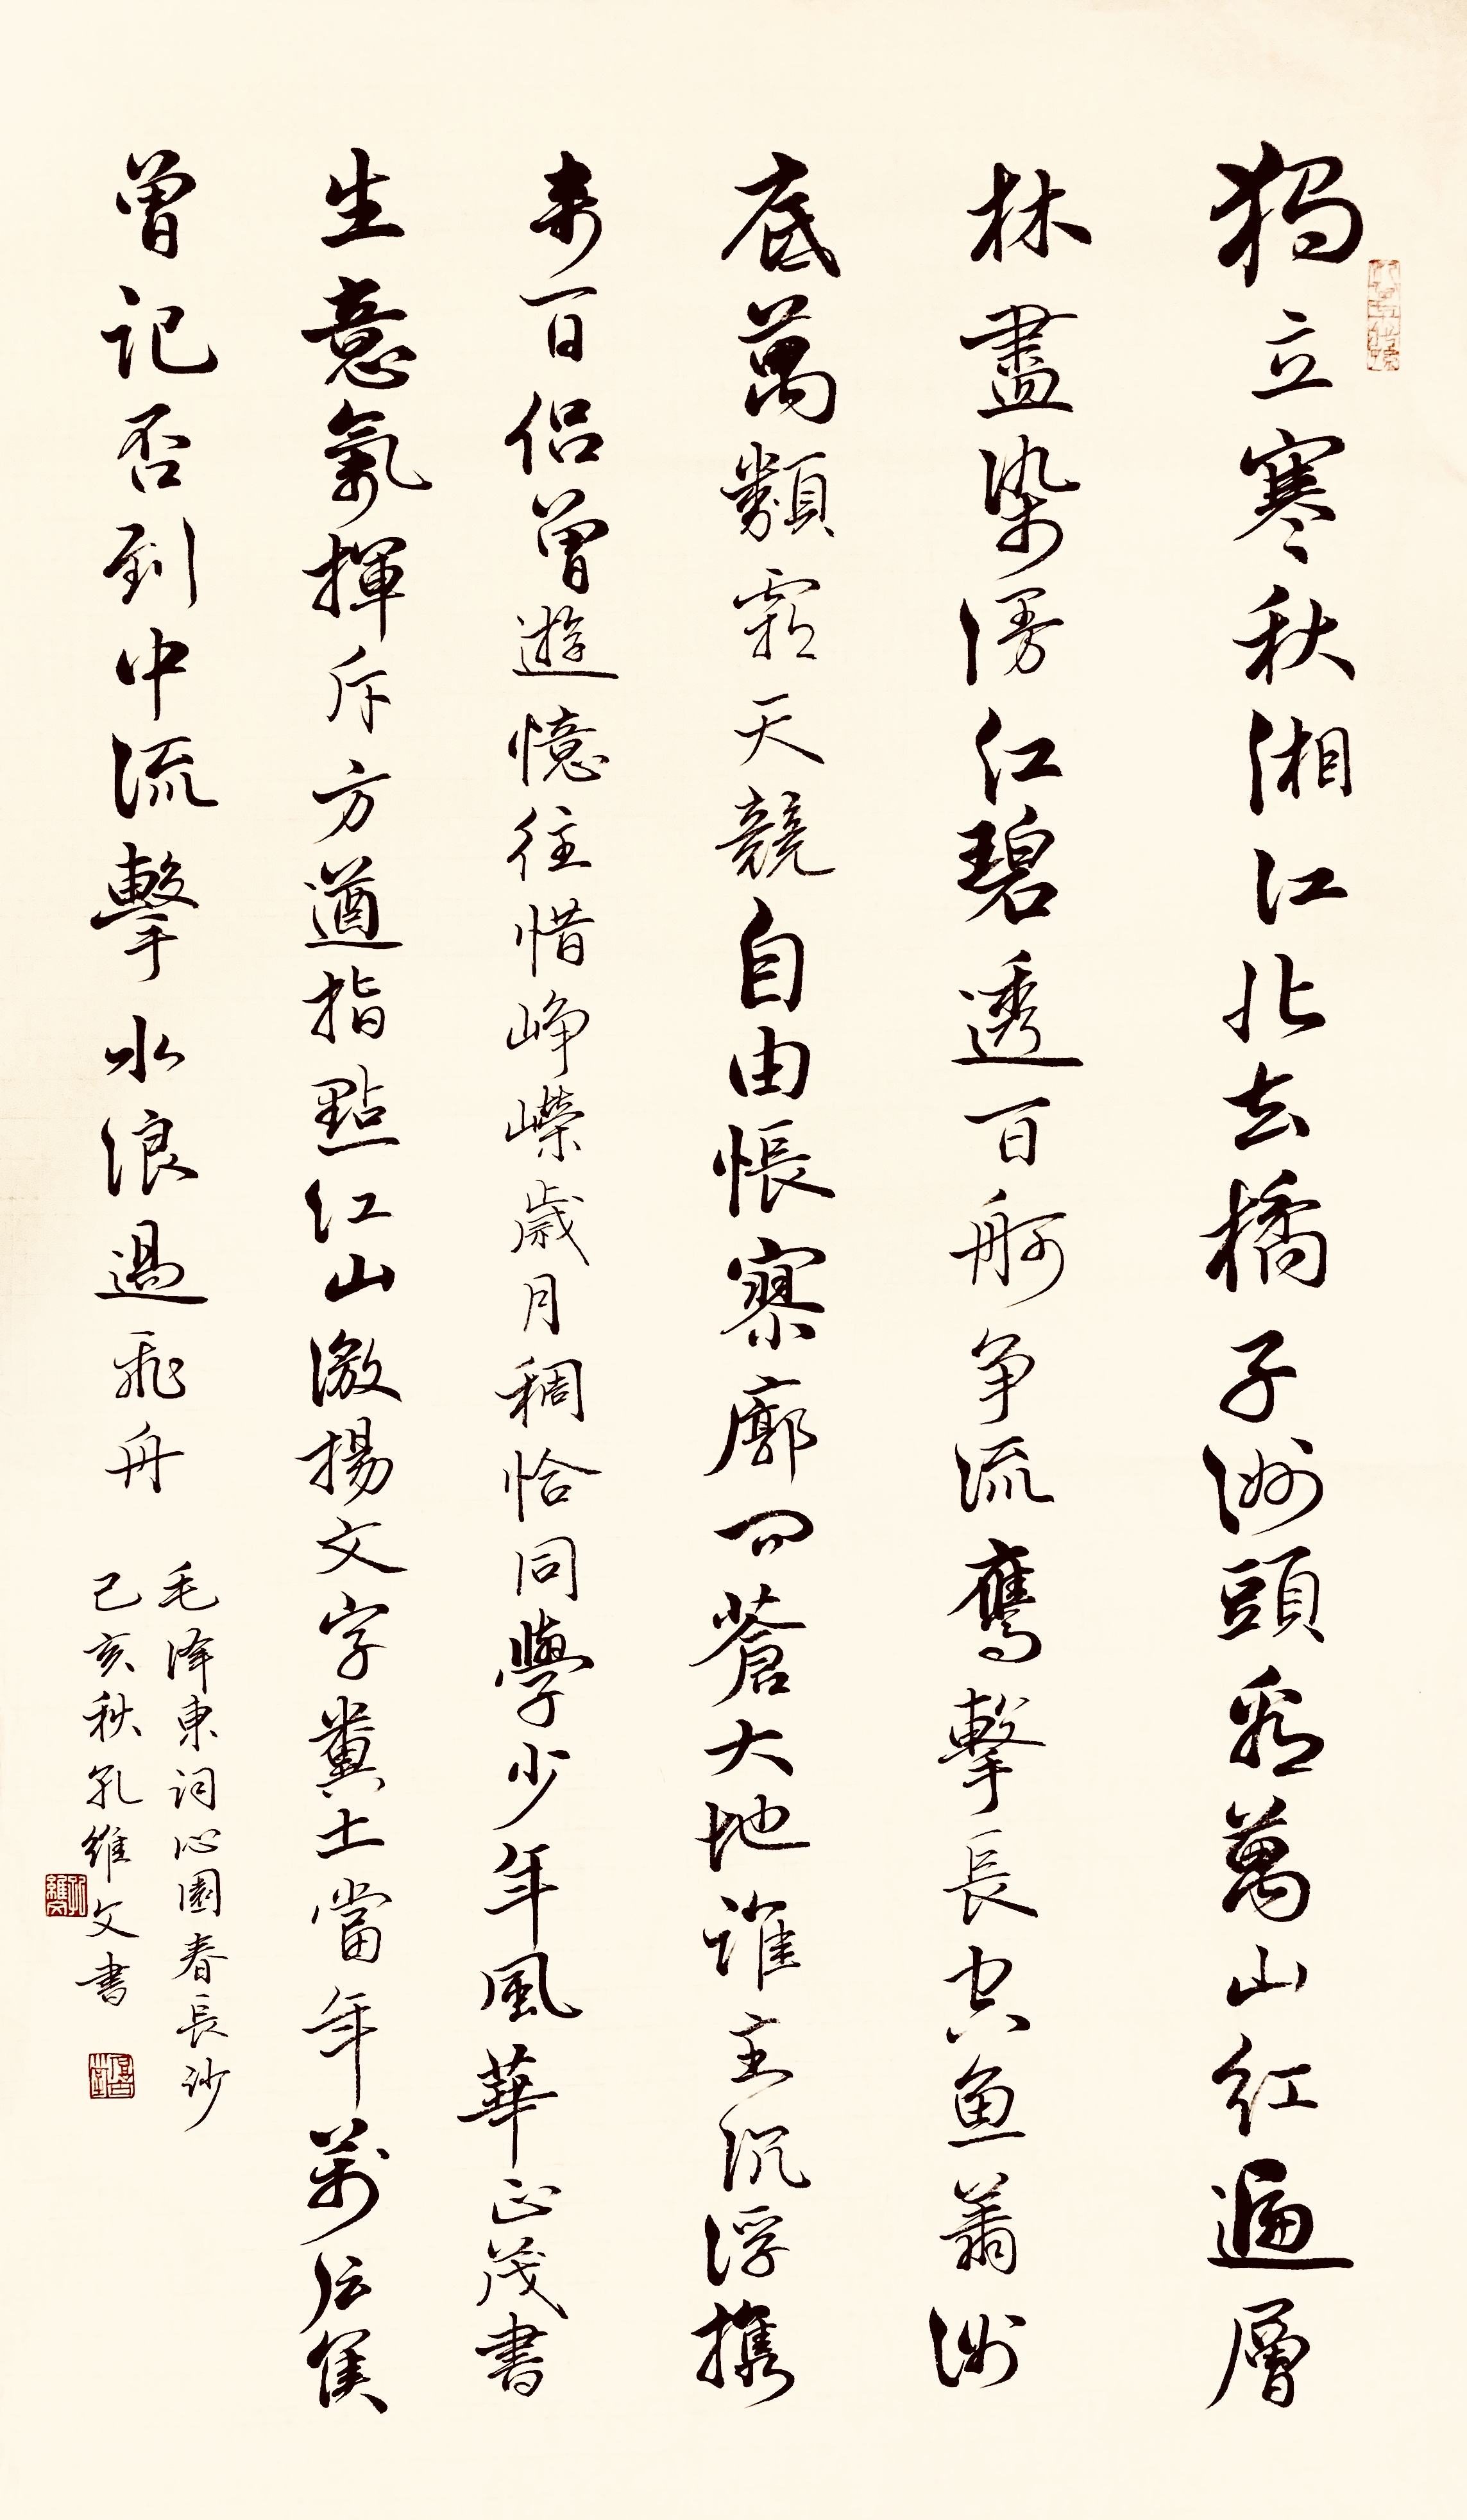 獨立寒秋湘江北去橘子洲頭看萬山紅遍層
林盡染漫江碧透百舸争流鷹擊長空魚翔浅
底萬類霜天競自由悵寥廓問蒼大地誰主沉浮携
来百侣曾遊憶往惜崢嶸歲月稠恰同學少年風華正茂書
生意氣揮斥方遒指點江山激揚文字糞土當年萬户侯
曾記否到中流擊水浪過飛舟
毛泽東詞沁園春長沙
己亥秋孔維文書